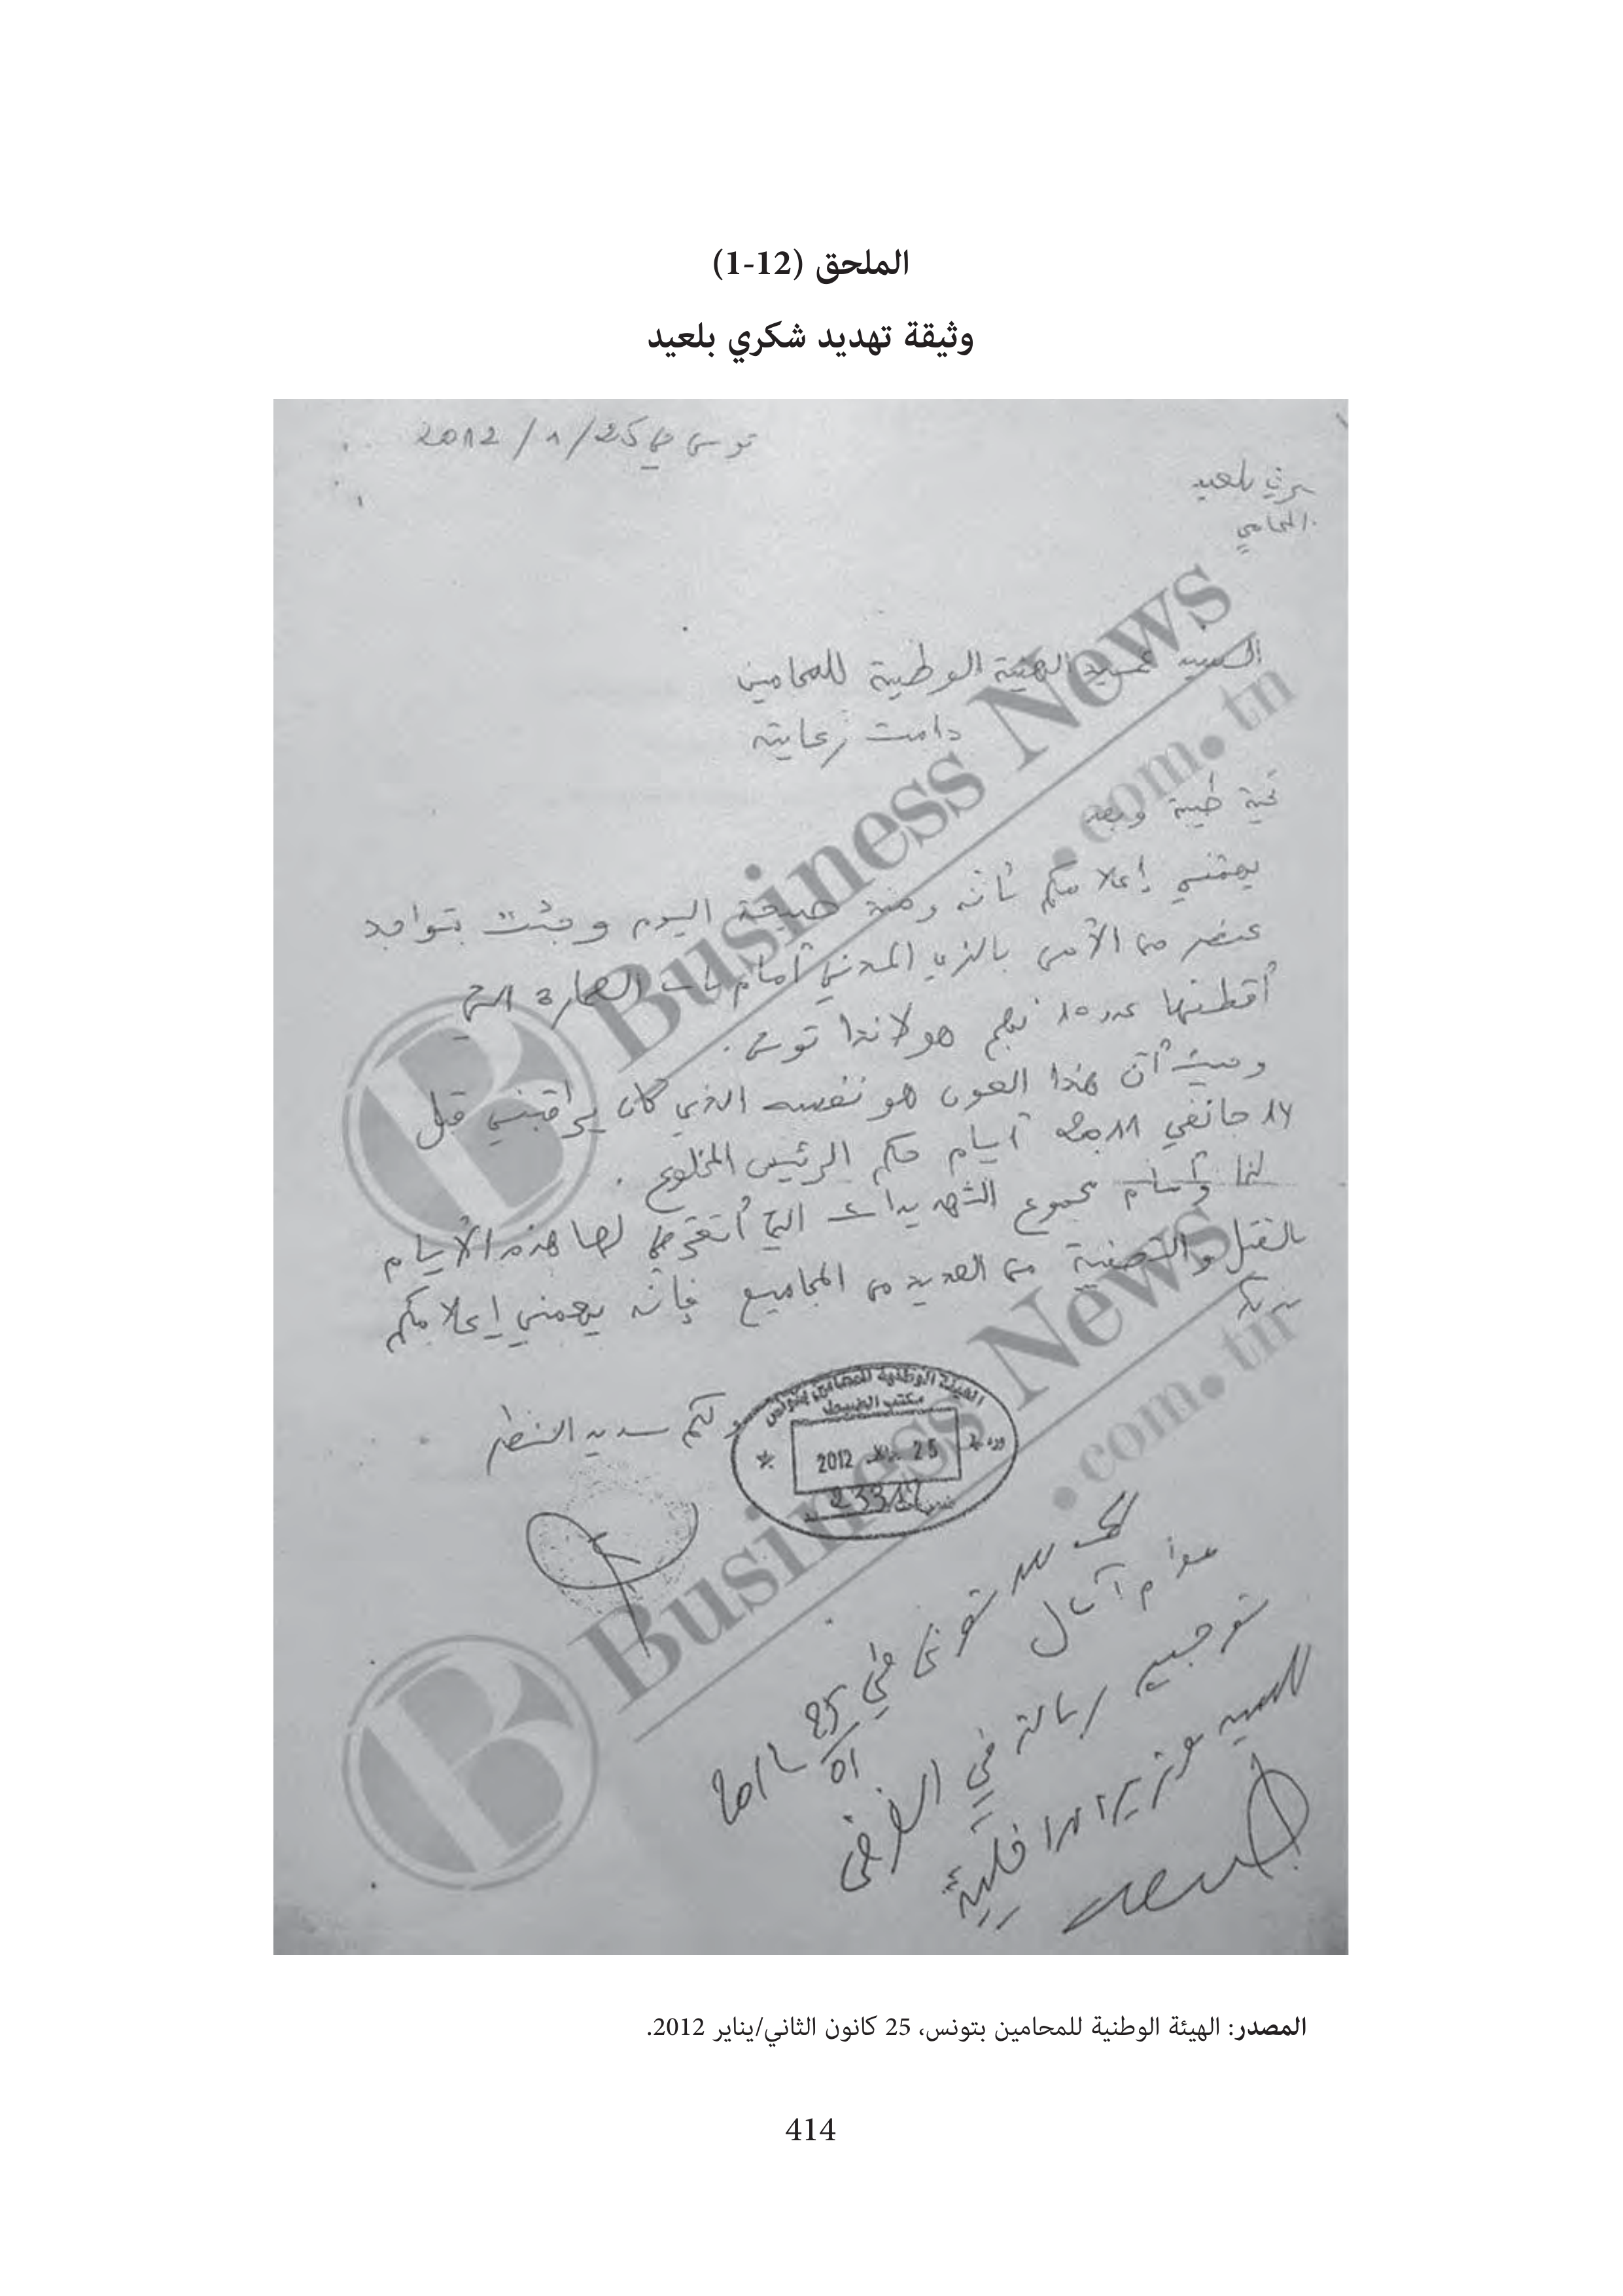 الملحق (1-12)
وثيقة تهديد شكري بلعيد
تونس في 25 / 1 / 2012
شكري بلعيد
المحامي
السيد عميد الهيئة الوطنية للمحامين
دامت رعايته
تحية طيبة وبعد
يهمني إعلامكم بأنه ومنذ صبيحة اليوم وجئت بتواجد
عنصر من الأمن بالزي المدني أمام باب العمارة التي
أقطنها عدد 10 نهج هولاندا تونس.
وحيث أن هذا العون هو نفسه الذي كان يراقبني قبل
14 جانفي 2011 أيام حكم الرئيس المخلوع.
لذا وأمام مجموع التهديدات التي أتعرض لها هذه الأيام
بالقتل والتصفية من العديد من المجاميع فإنه يهمني إعلامكم
بذلك
ولكم سديد النظر
الهيئة الوطنية للمحامين بتونس
مكتب الضبط
ورد في
25 جانفي 2012
تونس في 25/01/2012
توجيه رسالة في الغرض
للسيد وزير الداخلية
Business News
.com.tn
Business News
.com.tn
المصدر: الهيئة الوطنية للمحامين بتونس، 25 كانون الثاني/يناير 2012.
414